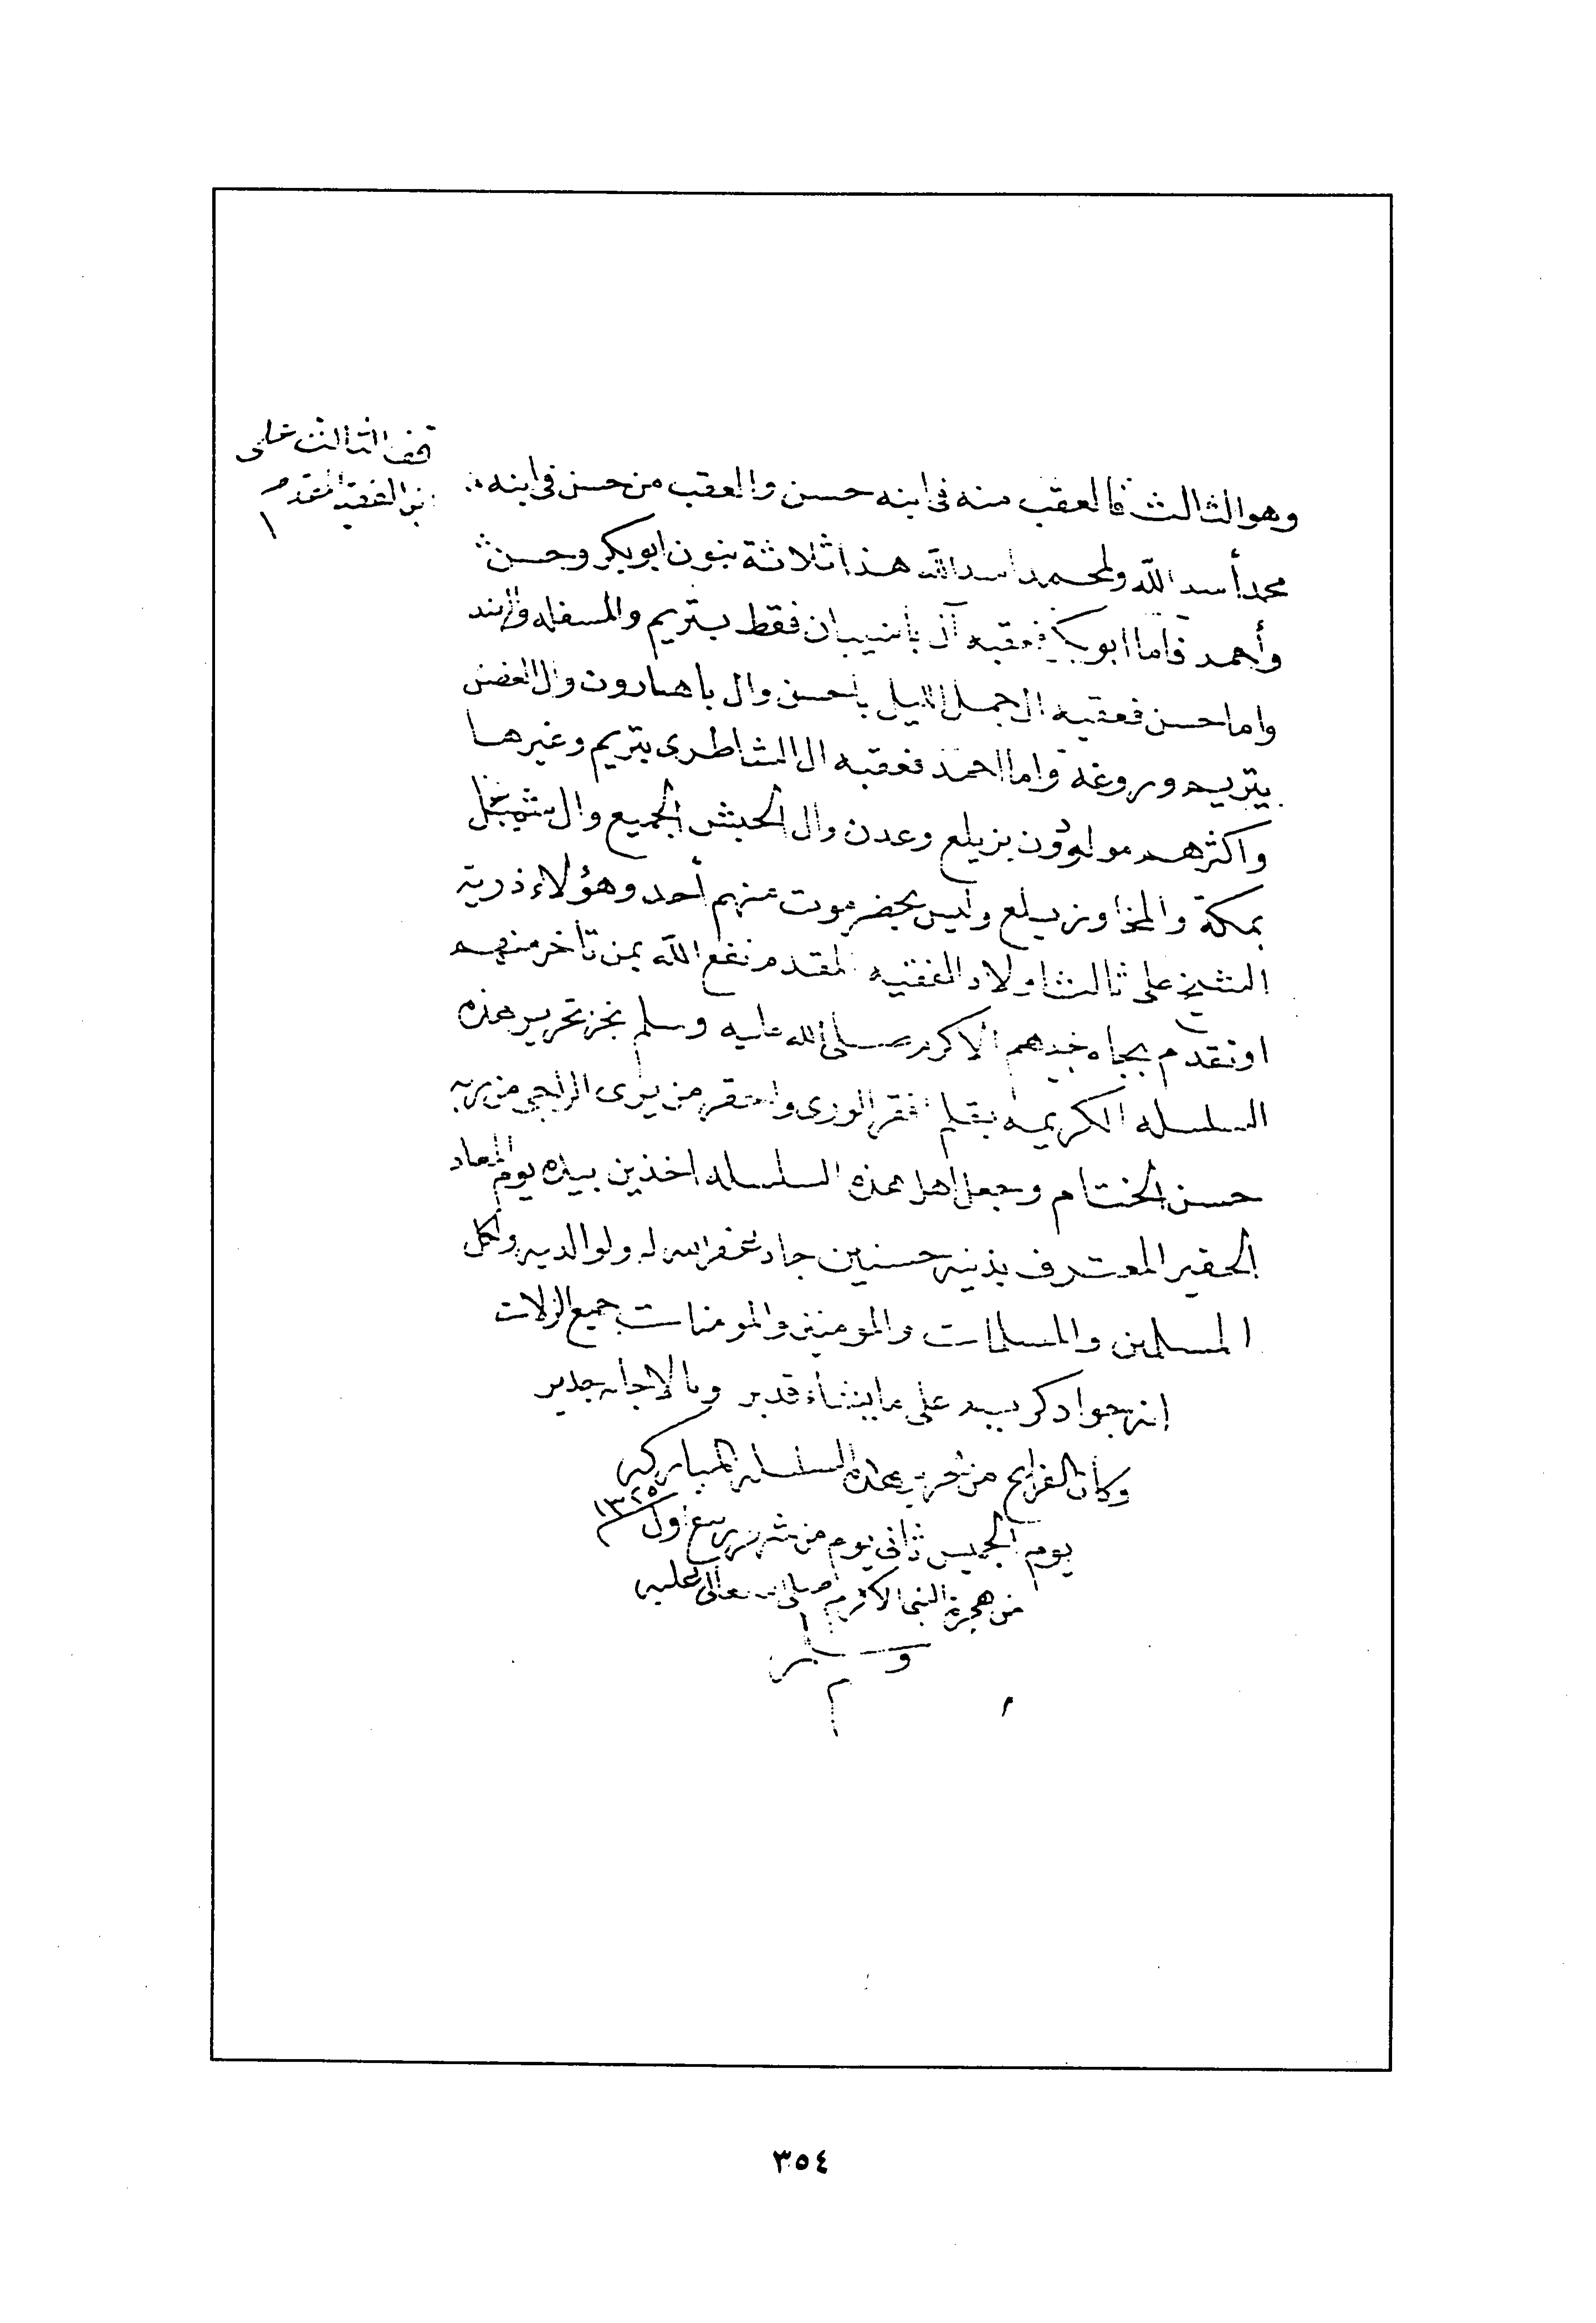 قف الثالث على
بن الفقيه المقدم
وهو الثالث فالعقب منه في ابنه حسن والعقب من حسن في ابنه
محمد أسد الله ولمحمد اسد الله هذا ثلاثة بنون ابوبكر وحسن
وأحمد فاما ابوبكر فعقبه آل باشيبان فقط بتريم والمسفله والهند
واما حسن فعقبه ال جمل الليل باحسن وال باهارون وال الغصن
بتريم وروغة واما احمد فعقبه ال الشاطرى بتريم وغيرها
واكثرهم مولدون بزيلع وعدن وال الحبش الجميع وال
بمكة والمخا وزيلع وليس بحضرموت منهم أحد وهؤلاء ذرية
الشيخ على ثالث اولاد الفقيه المقدم نفع الله بمن تأخر منهم
او تقدم بجاه جدهم الاكرم صلى الله عليه وسلم نجز تحرير هذه
السلسله الكريمه بقلم افقر الورى واحقر من يرى الراجي من ربه
حسن الختام وجعل اهل هذه السلسله اخذين بيده يوم المعاد
الحقير المعترف بذنبه حسنين جاد غفر الله له ولوالديه ولكل
المسلمين والمسلمات والمومنين والمومنات جميع الزلات
انه جواد كريم على ما يشاء قدير وبالاجابه جدير
وكان الفراغ من تحرير هذه السلسله المباركه
يوم الخميس ثاني يوم من شهر ربيع اول ١٣٢٥
من هجرة النبي الاكرم صلى الله تعالى عليه
وسلم
م
٣٥٤